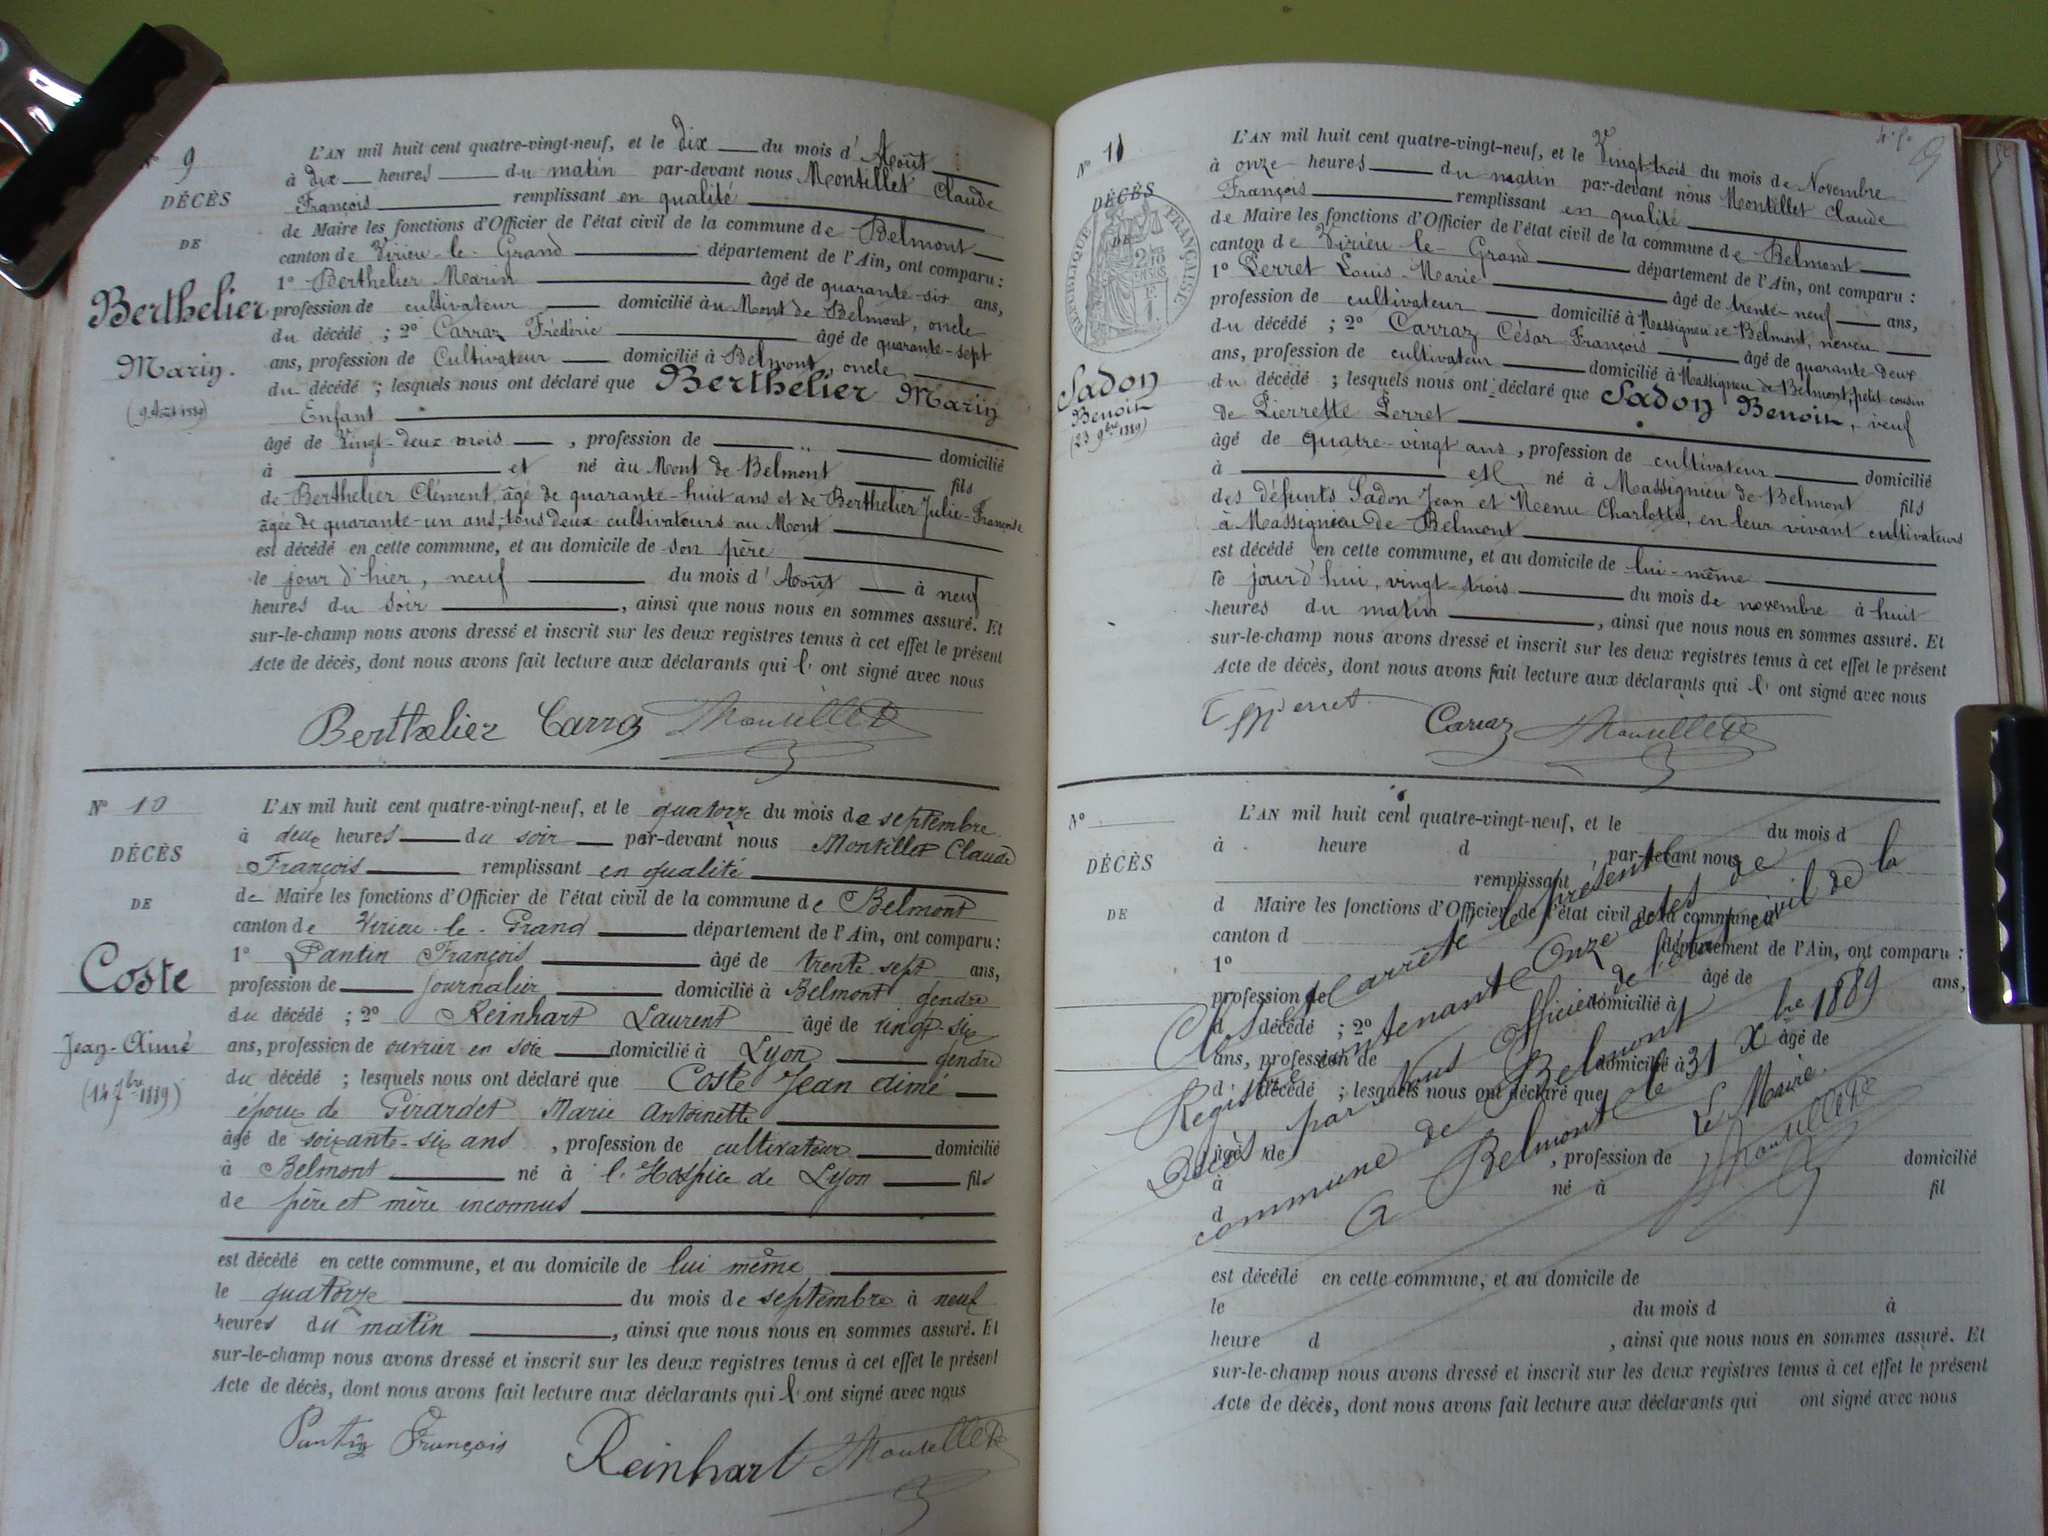 N° 9
DÉCÈS
DE
Berthelier
Marin.
(9 Août 1889)
L'AN mil huit cent quatre-vingt-neuf, et le dix du mois d'Août
à dix heures du matin par-devant nous Montillet Claude
François remplissant en qualité
de Maire les fonctions d'Officier de l'état civil de la commune de Belmont
canton de Virieu-le-Grand département de l'Ain, ont comparu :
1° Berthelier Marin âgé de quarante-six ans,
profession de cultivateur domicilié au Mont de Belmont, oncle
du décédé ; 2° Carraz Frédéric âgé de quarante-sept
ans, profession de Cultivateur domicilié à Belmont, oncle
du décédé ; lesquels nous ont déclaré que Berthelier Marin
Enfant
âgé de Vingt-deux mois, profession de domicilié
à et né au Mont de Belmont fils
de Berthelier Clément, âgé de quarante-huit ans et de Berthelier Julie-Françoise
âgée de quarante-un ans, tous deux cultivateurs au Mont
est décédé en cette commune, et au domicile de son père
le jour d'hier, neuf du mois d'Août à neuf
heures du soir, ainsi que nous nous en sommes assuré. Et
sur-le-champ nous avons dressé et inscrit sur les deux registres tenus à cet effet le présent
Acte de décès, dont nous avons fait lecture aux déclarants qui l'ont signé avec nous
Berthelier Carraz Montillet
N° 10
DÉCÈS
DE
Coste
Jean-Aimé
(14 7bre 1889)
L'AN mil huit cent quatre-vingt-neuf, et le quatorze du mois de septembre
à deux heures du soir par-devant nous Montillet Claude
François remplissant en qualité
de Maire les fonctions d'Officier de l'état civil de la commune de Belmont
canton de Virieu-le-Grand département de l'Ain, ont comparu :
1° Pantin François âgé de trente sept ans,
profession de journalier domicilié à Belmont gendre
du décédé ; 2° Reinhart Laurent âgé de vingt six
ans, profession de ouvrier en soie domicilié à Lyon gendre
du décédé ; lesquels nous ont déclaré que Coste Jean aimé
époux de Girardet Marie Antoinette
âgé de soixante-six ans, profession de cultivateur domicilié
à Belmont né à l'Hospice de Lyon fils
de père et mère inconnus
est décédé en cette commune, et au domicile de lui même
le quatorze du mois de septembre à neuf
heures du matin, ainsi que nous nous en sommes assuré. Et
sur-le-champ nous avons dressé et inscrit sur les deux registres tenus à cet effet le présent
Acte de décès, dont nous avons fait lecture aux déclarants qui l'ont signé avec nous
Pantin François Reinhart Montillet
N° 11
DÉCÈS
DE
RÉPUBLIQUE FRANÇAISE
Sadon
Benoit
(23 9bre 1889)
L'AN mil huit cent quatre-vingt-neuf, et le Vingt-trois du mois de Novembre
à onze heures du matin par-devant nous Montillet Claude
François remplissant en qualité
de Maire les fonctions d'Officier de l'état civil de la commune de Belmont
canton de Virieu-le-Grand département de l'Ain, ont comparu :
1° Perret Louis-Marie âgé de trente-neuf ans,
profession de cultivateur domicilié à Massignieu de Belmont, neveu
du décédé ; 2° Carraz César François âgé de quarante-deux
ans, profession de cultivateur domicilié à Massignieu de Belmont, petit cousin
du décédé ; lesquels nous ont déclaré que Sadon Benoit, veuf
de Pierrette Perret
âgé de quatre-vingt ans, profession de cultivateur domicilié
à et né à Massignieu de Belmont fils
des défunts Sadon Jean et Charlotte, en leur vivant cultivateurs
à Massignieu de Belmont
est décédé en cette commune, et au domicile de lui-même
le jour d'hui, vingt-trois du mois de novembre à huit
heures du matin, ainsi que nous nous en sommes assuré. Et
sur-le-champ nous avons dressé et inscrit sur les deux registres tenus à cet effet le présent
Acte de décès, dont nous avons fait lecture aux déclarants qui l'ont signé avec nous
Perret Carraz Montillet
N°
DÉCÈS
DE
L'AN mil huit cent quatre-vingt-neuf, et le du mois d
à heure d par-devant nous
remplissant
d Maire les fonctions d'Officier de l'état civil de la commune d
canton d département de l'Ain, ont comparu :
1° âgé de ans,
profession de domicilié à
d décédé ; 2° âgé de
ans, profession de domicilié à
d décédé ; lesquels nous ont déclaré que
âgé de, profession de domicilié
à né à fil
d
est décédé en cette commune, et au domicile de
le du mois d à
heure d, ainsi que nous nous en sommes assuré. Et
sur-le-champ nous avons dressé et inscrit sur les deux registres tenus à cet effet le présent
Acte de décès, dont nous avons fait lecture aux déclarants qui ont signé avec nous
Clos et arrêté le présent
Registre contenant Onze actes de
Décès par Nous Officier de l'état civil de la
commune de Belmont
A Belmont le 31 Xbre 1889
Le Maire.
Montillet